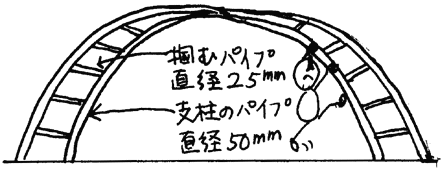 掴むパイプ
直径25mm
支柱のパイプ
直径50mm